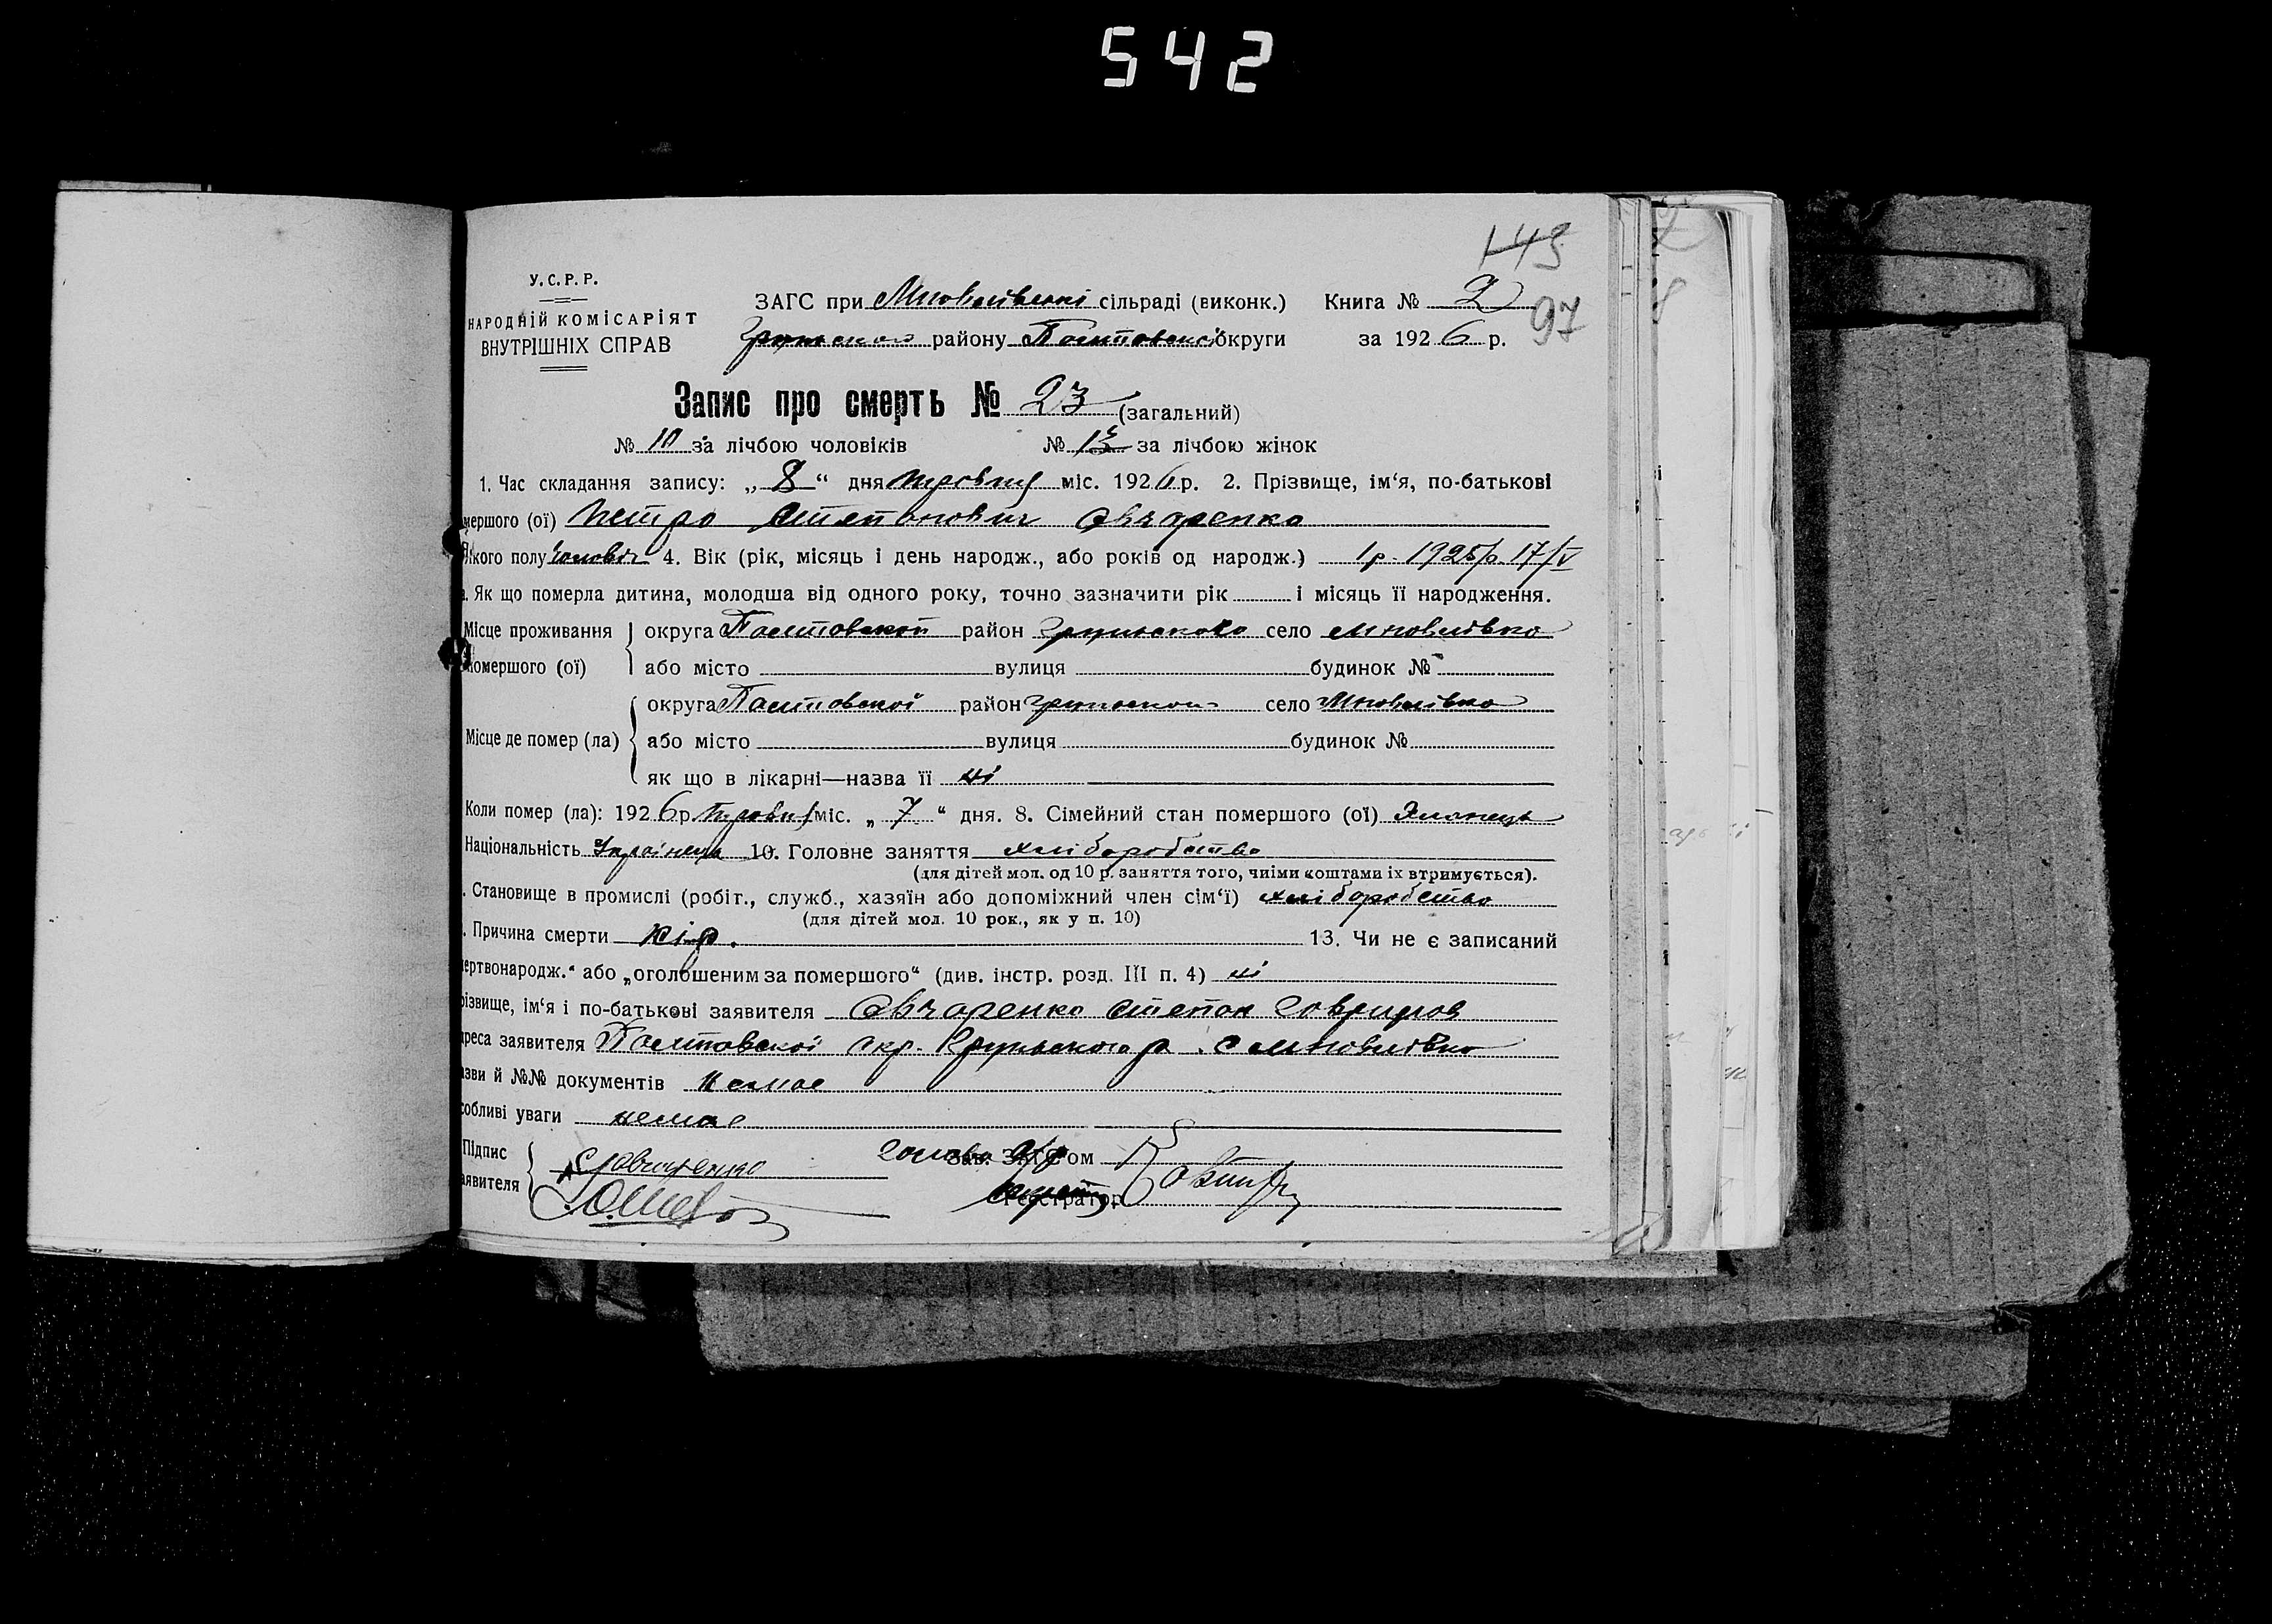 542
143
У.С.Р.Р.
НАРОДНІЙ КОМІСАРІЯТ
ВНУТРІШНІХ СПРАВ
ЗАГС при сільраді (виконк.) Книга № 2
97
району Полтовської округи за 1926 р.
Запис про смерть № 23 (загальний)
№ 10 за лічбою чоловіків № 13 за лічбою жінок
1. Час складання запису: „8“ дня травня міс. 1926 р. 2. Прізвище, ім‘я, по-батькові
мершого (ої) Петро Степанович Овчаренко
якого полу 4. Вік (рік, місяць і день народж., або років од народж.) 1р. 1925/р. 17/V
Як що померла дитина, молодша від одного року, точно зазначити рік і місяць її народження.
Місце проживання округа Полтовской район село
помершого (ої) або місто вулиця будинок №
округа Полтовської район село
Місце де помер (ла) або місто вулиця будинок №
як що в лікарні—назва її ні
Коли помер (ла): 1926 р. травня міс. „7“ дня. 8. Сімейний стан помершого (ої)
Національність Українець 10. Головне заняття хліборобство
(для дітей мол. од 10 р. заняття того, чиіми коштами іх втримується).
Становище в промислі (робіт., служб., хазяїн або допоміжний член сім‘ї) хліборобство
(для дітей мол. 10 рок., як у п. 10)
Причина смерти кір. 13. Чи не є записаний
ертвонародж.“ або „оголошеним за помершого“ (див. інстр. розд. III п. 4) ні
різвище, ім‘я і по-батькові заявителя Овчаренко Степан
дреса заявителя Полтовської окр. р.
зви й №№ документів немае
собливі уваги немае
Підпис голова Зав. ЗАГС‘ом
аявителя Реєстратор